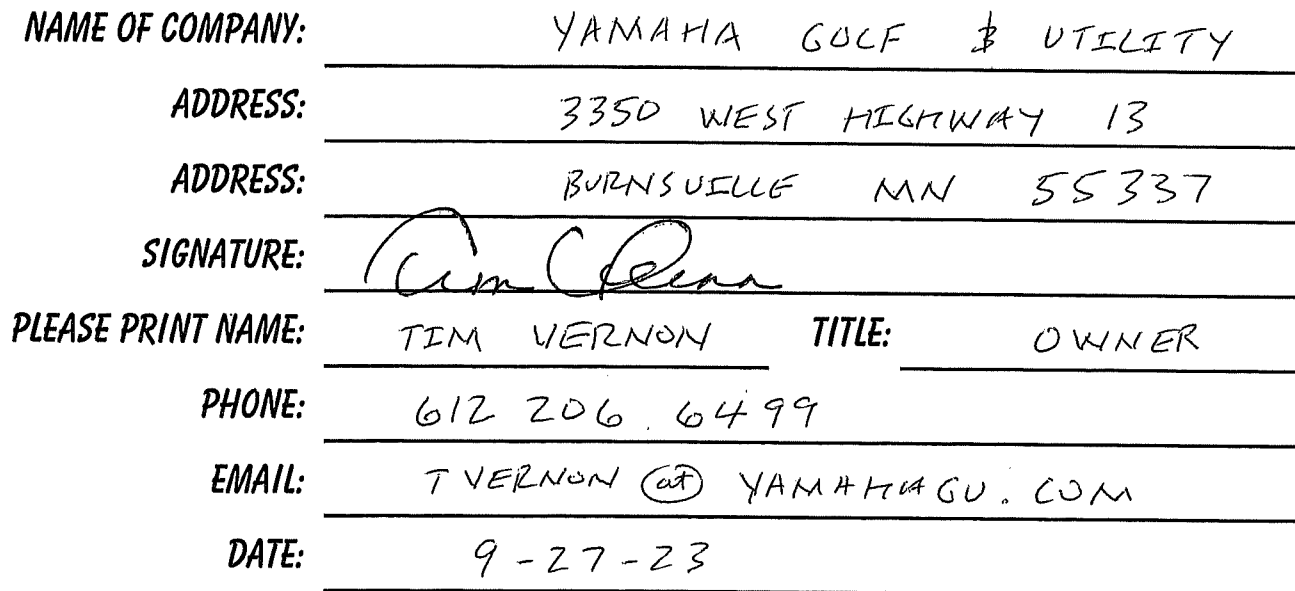 NAME OF COMPANY: YAMAHA GOLF & UTILITY
ADDRESS: 3350 WEST HIGHWAY 13
ADDRESS: BURNSVILLE MN 55337
SIGNATURE:
PLEASE PRINT NAME: TIM VERNON TITLE: OWNER
PHONE: 612 206.6499
EMAIL: TVERNON at YAMAHAGU.COM
DATE: 9-27-23